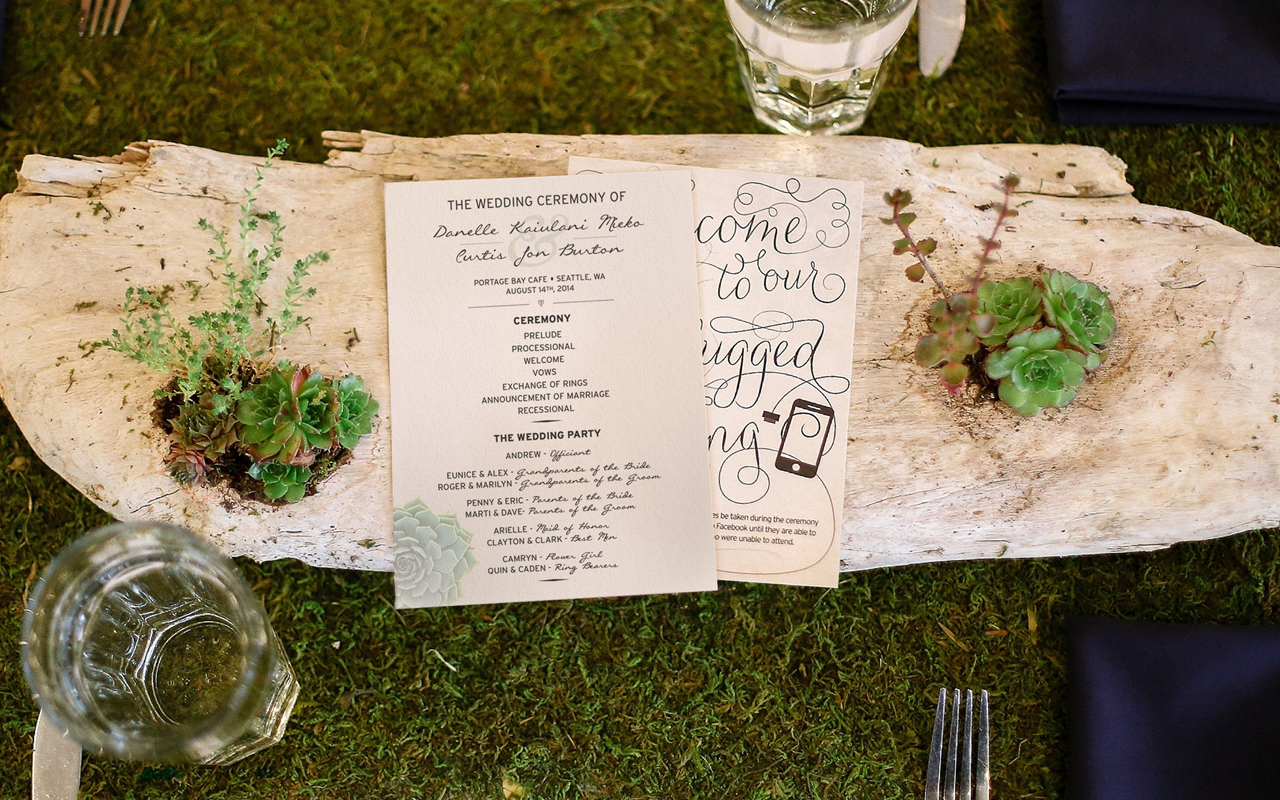 THE WEDDING CEREMONY OF
Danelle Kaiulani Mieko
&
Curtis Jon Burton
PORTAGE BAY CAFE • SEATTLE, WA
AUGUST 14TH, 2014
CEREMONY
PRELUDE
PROCESSIONAL
WELCOME
VOWS
EXCHANGE OF RINGS
ANNOUNCEMENT OF MARRIAGE
RECESSIONAL
THE WEDDING PARTY
ANDREW - Officiant
EUNICE & ALEX - Grandparents of the Bride
ROGER & MARILYN - Grandparents of the Groom
PENNY & ERIC - Parents of the Bride
MARTI & DAVE- Parents of the Groom
ARIELLE - Maid of Honor
CLAYTON & CLARK - Best Men
CAMRYN - Flower Girl
QUIN & CADEN - Ring Bearers
come
to our
ugged
ng
es be taken during the ceremony
Facebook until they are able to
o were unable to attend.